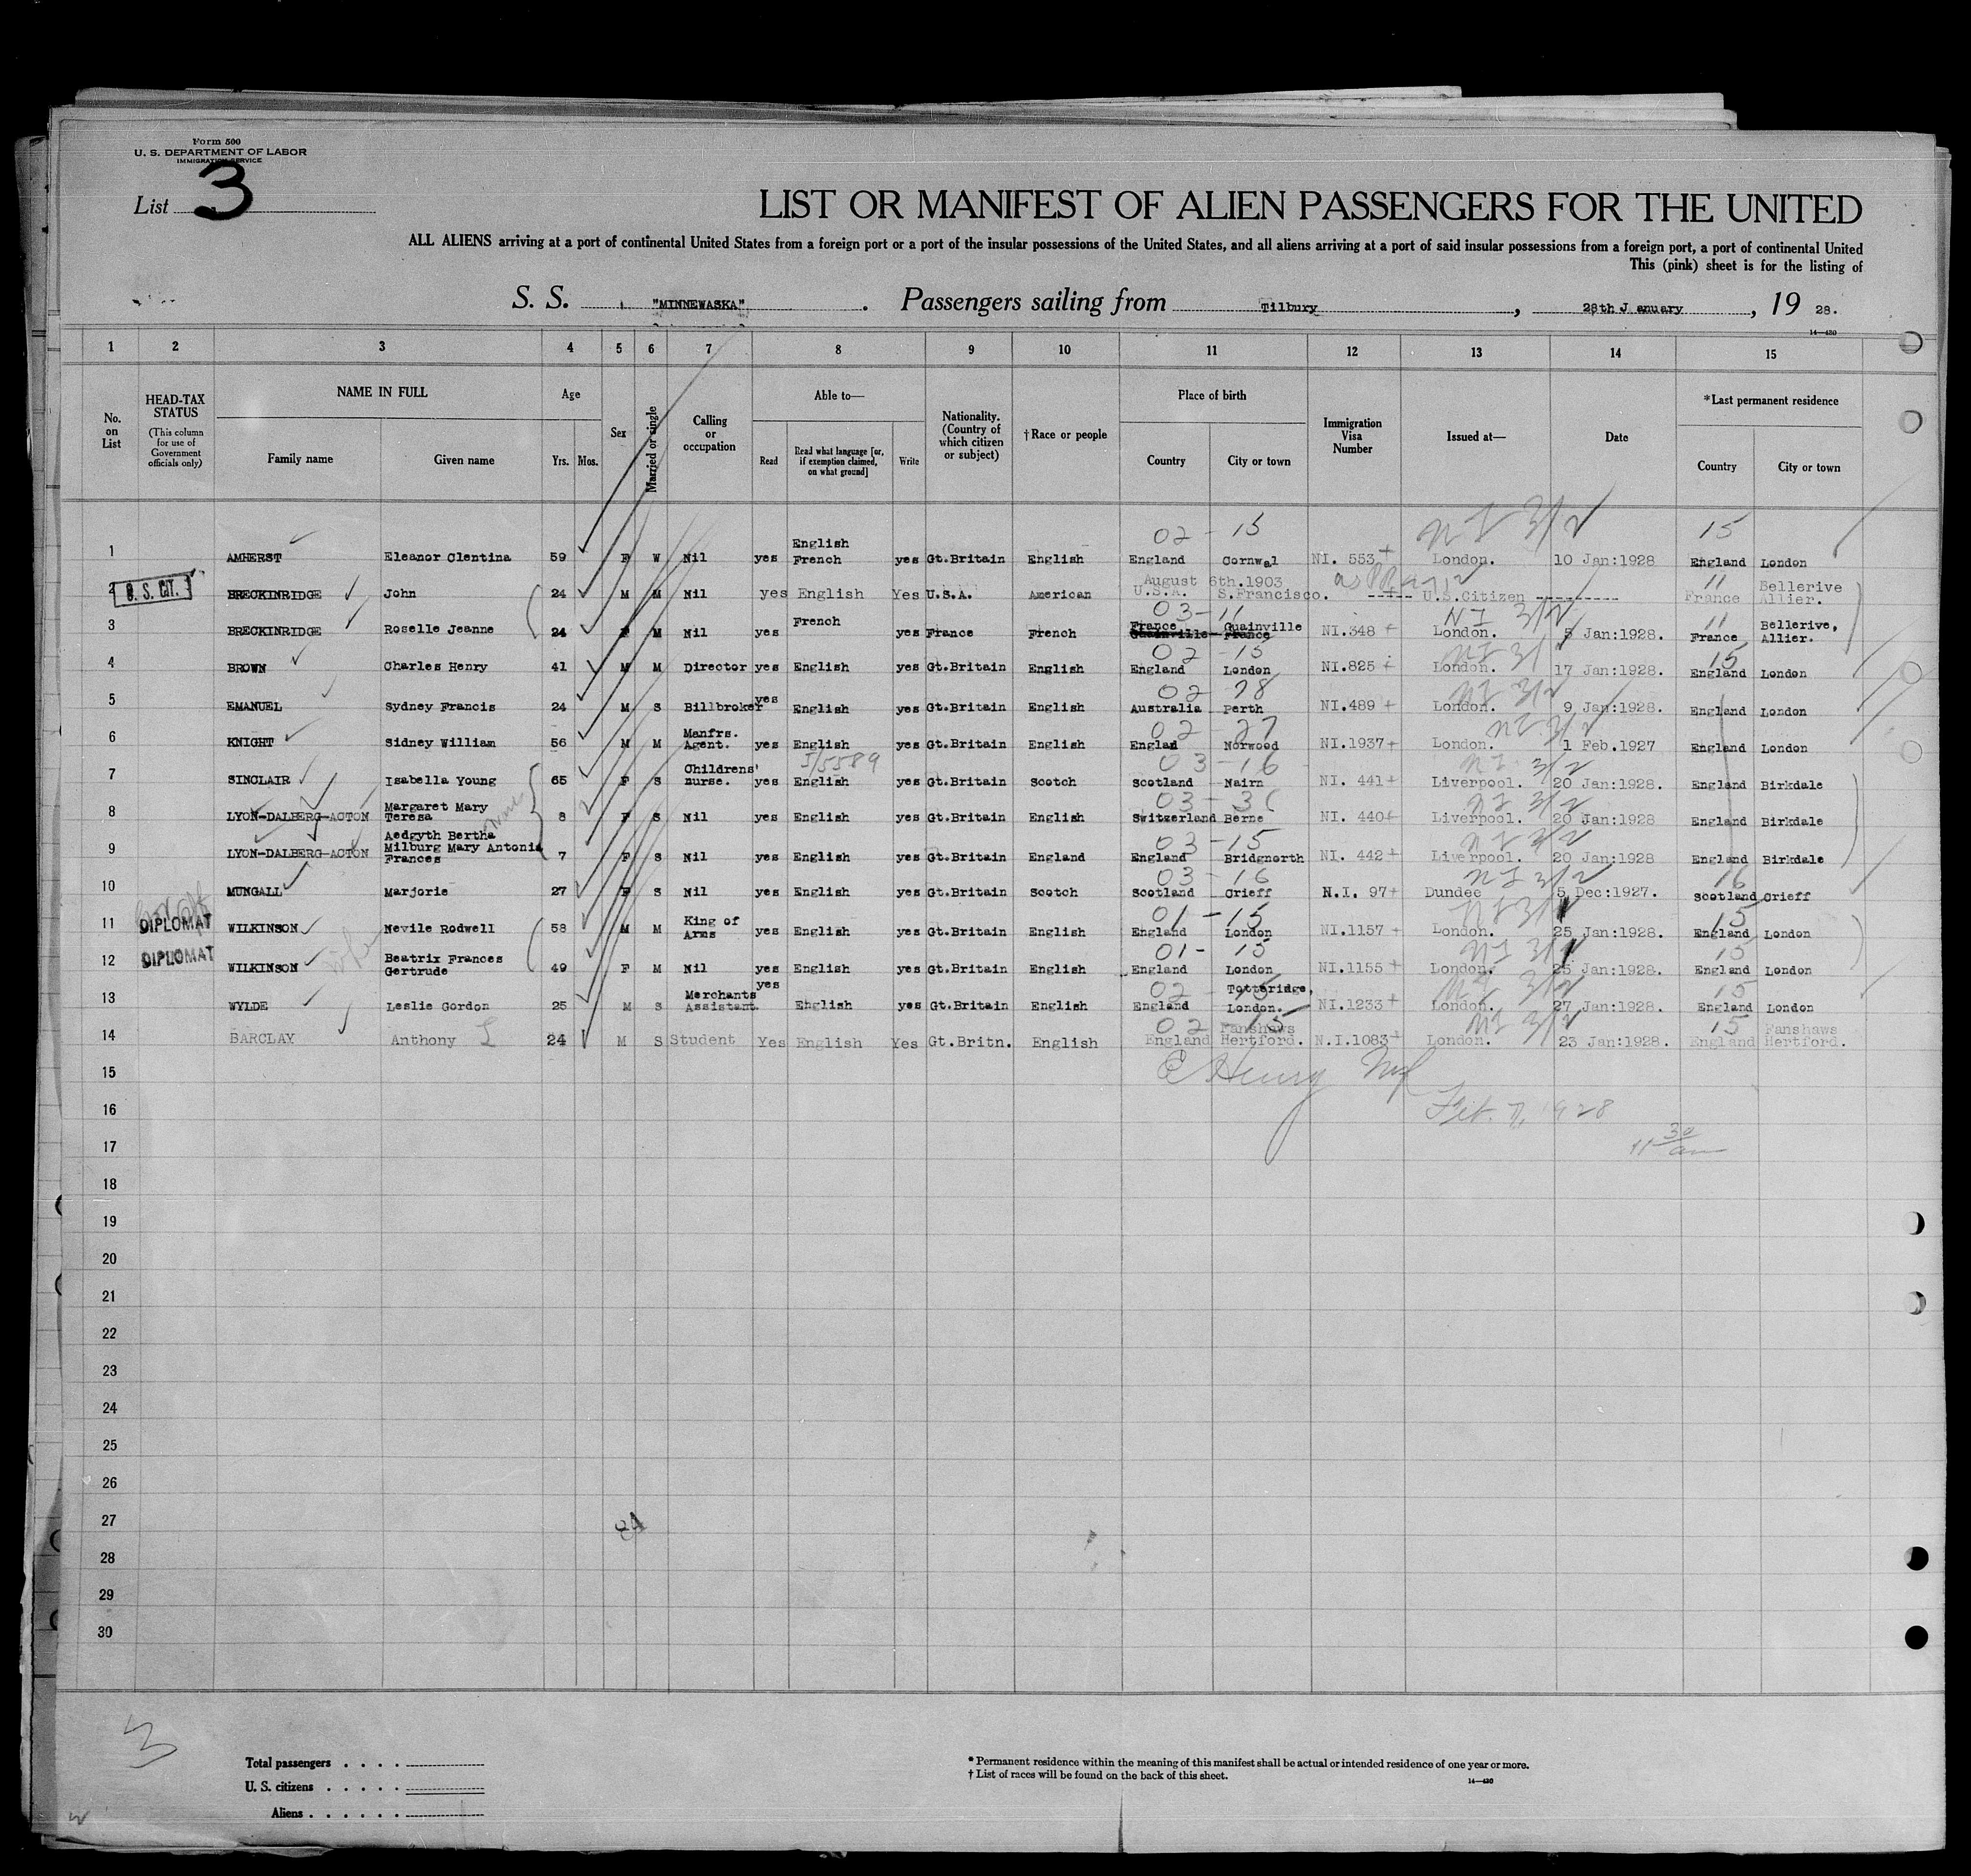 Form 500
U. S. DEPARTMENT OF LABOR
IMMIGRATION SERVICE
List 3
LIST OR MANIFEST OF ALIEN PASSENGERS FOR THE UNITED
ALL ALIENS arriving at a port of continental United States from a foreign port or a port of the insular possessions of the United States, and all aliens arriving at a port of said insular possessions from a foreign port, a port of continental United
This (pink) sheet is for the listing of
S. S. "MINNEWASKA". Passengers sailing from Tilbury, 28th J anuary, 19 28.
14—430
1 2 3 4 5 6 7 8 9 10 11 12 13 14 15
No. on List
HEAD-TAX STATUS
(This column for use of Government officials only)
NAME IN FULL
Family name Given name
Age
Yrs. Mos.
Sex
Married or single
Calling or occupation
Able to—
Read Read what language [or, if exemption claimed, on what ground] Write
Nationality. (Country of which citizen or subject)
†Race or people
Place of birth
Country City or town
Immigration Visa Number
Issued at—
Date
*Last permanent residence
Country City or town
02 - 15 NI 3/2 15
1 AMHERST Eleanor Clentina 59 F W Nil yes English French yes Gt.Britain English England Cornwal NI. 553 London. 10 Jan:1928 England London
2 U. S. CIT. BRECKINRIDGE John 24 M M Nil yes English Yes U.S.A. American August 6th.1903 U.S.A. S.Francisco. ----- U.S.Citizen --------- 11 France Bellerive Allier.
03-11 NI 3/2 11
3 BRECKINRIDGE Roselle Jeanne 24 F M Nil yes French yes France French France Guainville Guainville France NI.348 London. 5 Jan:1928. France Bellerive, Allier.
02 - 15 NI 3/2 15
4 BROWN Charles Henry 41 M M Director yes English yes Gt.Britain English England London NI.825 London. 17 Jan:1928. England London
02 - 78 NI 3/2
5 EMANUEL Sydney Francis 24 M S Billbroker yes English yes Gt.Britain English Australia Perth NI.489 London. 9 Jan:1928. England London
02 - 27 NI 3/2
6 KNIGHT Sidney William 56 M M Manfrs. Agent. yes English yes Gt.Britain English Englad Norwood NI.1937 London. 1 Feb.1927 England London
5/5589 03-16 NI 3/2
7 SINCLAIR Isabella Young 65 F S Childrens' nurse. yes English yes Gt.Britain Scotch Scotland Nairn NI. 441 Liverpool. 20 Jan:1928. England Birkdale
03-36 NI 3/2
8 LYON-DALBERG-ACTON Margaret Mary Teresa 8 F S Nil yes English yes Gt.Britain English Switzerland Berne NI. 440 Liverpool. 20 Jan:1928 England Birkdale
03-15 NI 3/2
9 LYON-DALBERG-ACTON Aedgyth Bertha Milburg Mary Antonia Frances 7 F S Nil yes English yes Gt.Britain England England Bridgnorth NI. 442 Liverpool. 20 Jan:1928 England Birkdale
03-16 NI 3/2 16
10 MUNGALL Marjorie 27 F S Nil yes English yes Gt.Britain Scotch Scotland Crieff N.I. 97 Dundee 5 Dec:1927. Scotland Crieff
01-15 NI 3/2 15
11 DIPLOMAT WILKINSON Nevile Rodwell 58 M M King of Arms yes English yes Gt.Britain English England London NI.1157 London. 25 Jan:1928. England London
01-15 NI 3/2 15
12 DIPLOMAT WILKINSON Beatrix Frances Gertrude 49 F M Nil yes English yes Gt.Britain English England London NI.1155 London. 25 Jan:1928. England London
02 - 15 NI 3/2 15
13 WYLDE Leslie Gordon 25 M S Merchants Assistant. yes English yes Gt.Britain English England Totteridge, London. NI.1233 London. 27 Jan:1928. England London
02 15 NI 3/2 15
14 BARCLAY Anthony L 24 M S Student Yes English Yes Gt.Britn. English England Fanshaws Hertford. N.I.1083 London. 23 Jan:1928. England Fanshaws Hertford.
15
E Henry
16
Feb. 7, 1928
17
11 30 am
18
19
20
21
22
23
24
25
26
27
28
29
30
3
Total passengers . . . .
U. S. citizens . . . . .
Aliens . . . . . .
* Permanent residence within the meaning of this manifest shall be actual or intended residence of one year or more.
† List of races will be found on the back of this sheet.
14—430